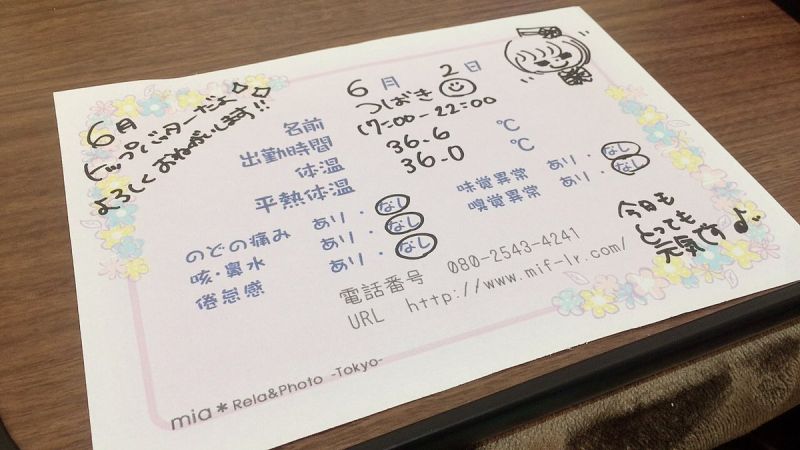 6月
トップバッターだよ
よろしくおねがいします!!
6月 2日
名前 つばき
出勤時間 17:00-22:00
体温 36.6 ℃
平熱体温 36.0 ℃
のどの痛み あり・なし
咳・鼻水 あり・なし
倦怠感 あり・なし
味覚異常 あり・なし
嗅覚異常 あり・なし
今日も
とっても
元気です♪
電話番号 080-2543-4241
URL http://www.mif-lx.com/
mia*Rela&Photo -Tokyo-